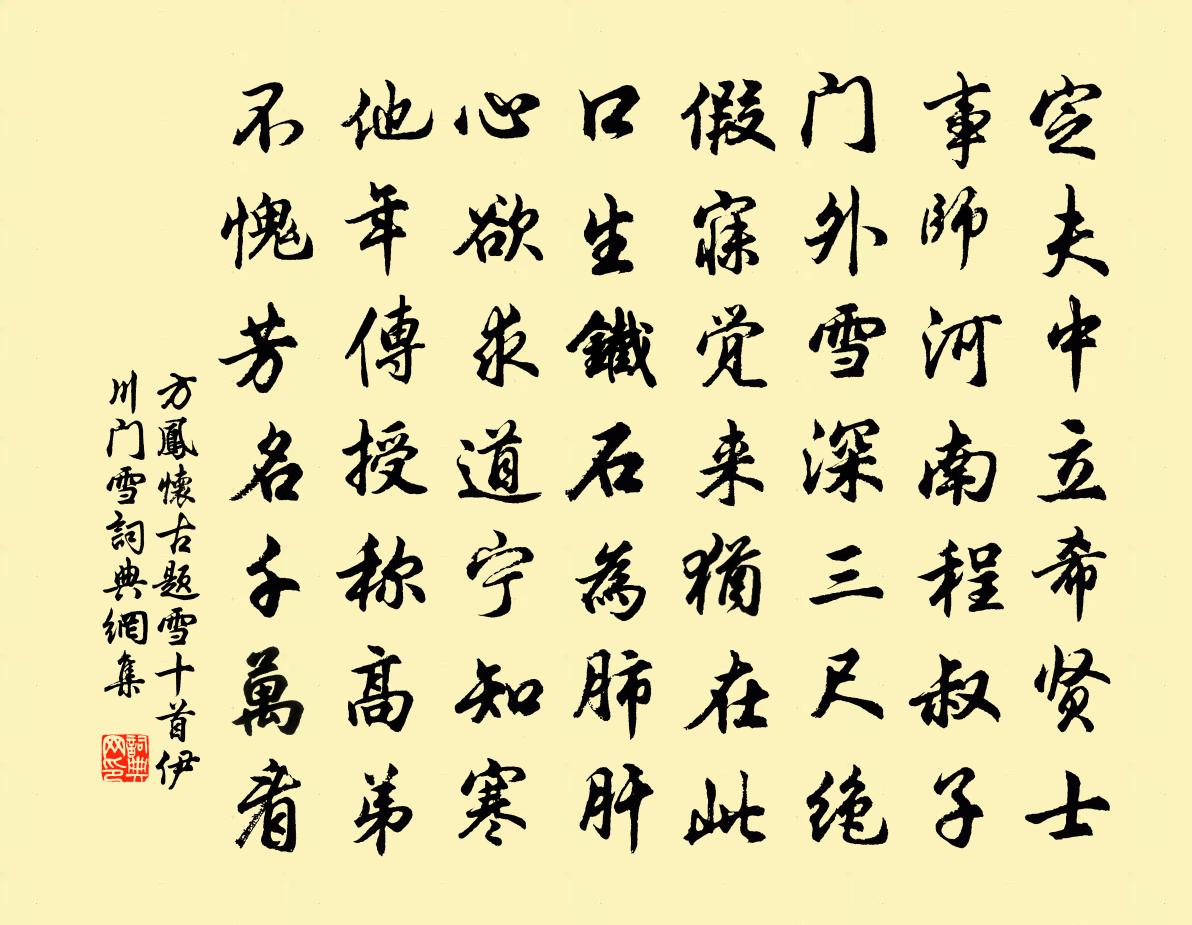 定夫中立希贤士
事師河南程叔子
门外雪深三尺绝
假寐觉来猶在此
口生鐵石為肺肝
心欲求道宁知寒
他年傳授称高弟
不愧芳名千萬者
方鳳懷古题雪十首伊
川门雪詞典網集
詞典
网印